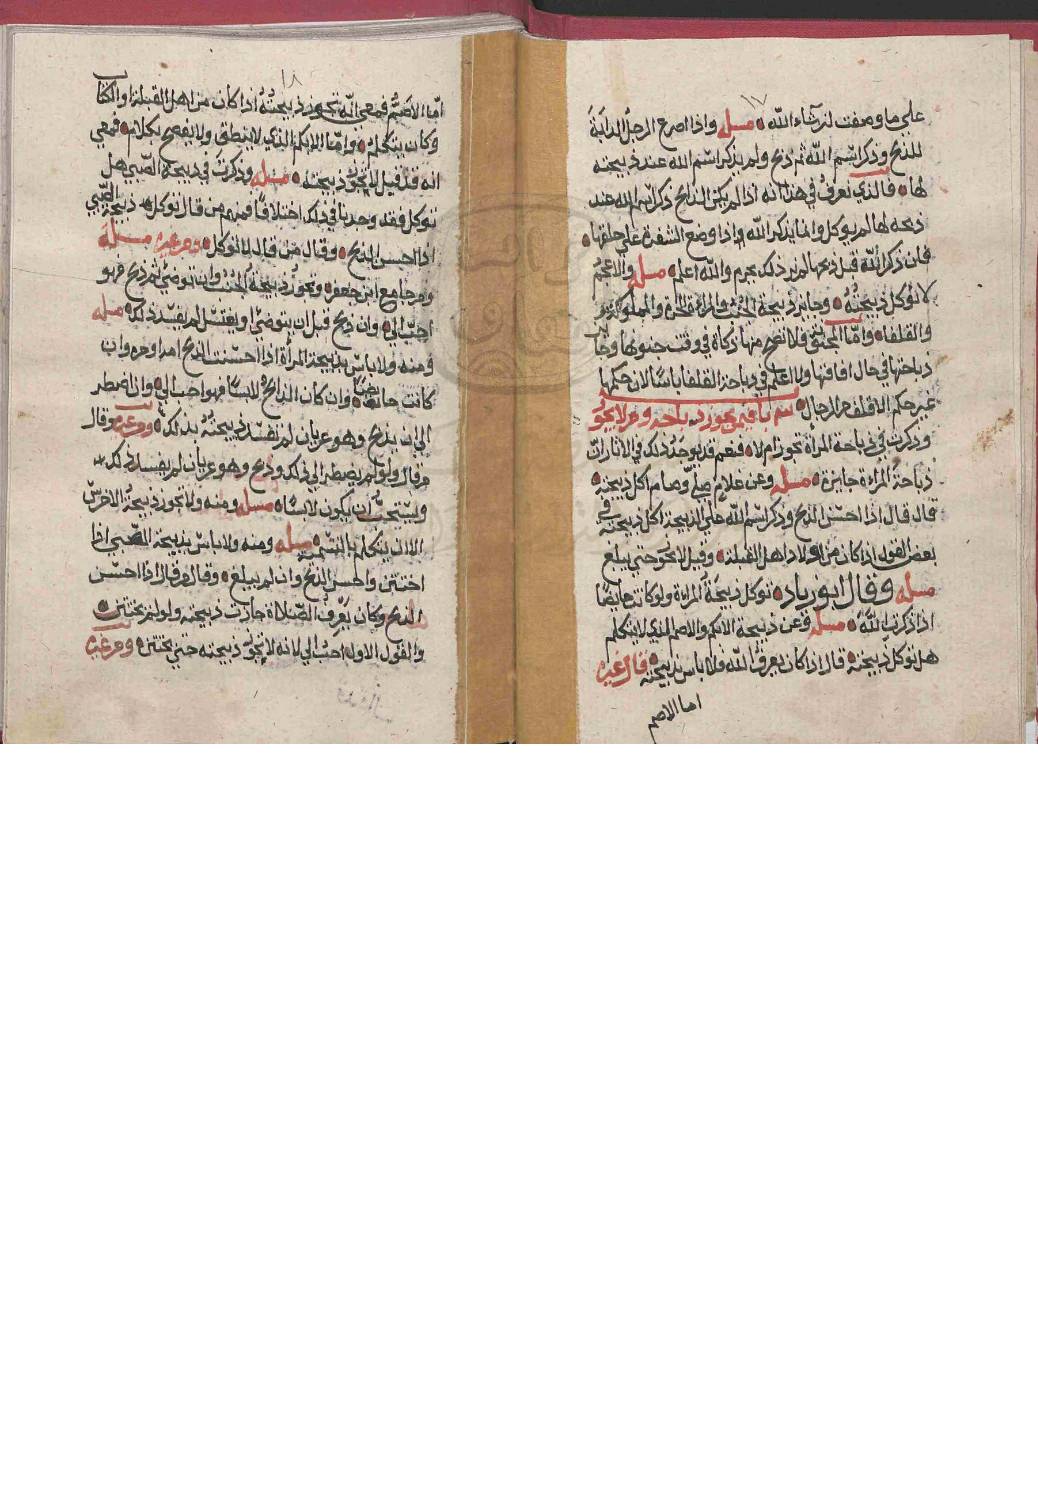 ١٧
على ما وصفت لك ان شاء الله ۞ مسلة واذا اضجع الرجل الدابة
للذبح وذكر اسم الله ثم ذبح ولم يذكر اسم الله عند ذبيحته
لها ۞ فالذي نعرف في هذا انه اذا لم يكن الذابح ذكر اسم الله عند
ذبحه لها لم يوكل وانما يذكر الله اذا وضع الشفرة على حلقها ۞
فان ذكر الله قبل ذبحها لم نر ذلك يحرم والله اعلم ۞ مسلة والاعجم
لا توكل ذبيحته ۞ وجايز ذبيحة الخنثى والمراة الحرة والمملوكة
والقلفا ۞ واما المجنون فلا تصح منها زكاة في وقت جنونها وجايز
ذباحتها في حال افاقتها ولا اعلم في ذباحة القلفا باسا لان حكمها
غير حكم الاقلف من الرجال ۞ باب فيمن يجوز ذباحه ومن لا يجوز
وذكرت في ذباحة المراة تجوز ام لا ۞ فنعم قد يوجد ذلك في الاثار ان
ذباحة المراة جايزة ۞ مسلة وعن غلام صلى وصام اكل ذبيحته ۞
قال قال اذا احسن الذبح وذكر اسم الله على الذبيحة اكل ذبيحته في
بعض القول اذا كان من اولاد اهل القبلة ۞ وقيل لا تجوز حتى يبلغ
مسلة وقال ابو زياد ۞ توكل ذبيحة المراة ولو كانت حايضا
اذا ذكرت الله ۞ مسلة وعن ذبيحة الابكم والاصم الذي لا يتكلم
هل توكل ذبيحته ۞ قال اذا كان يعرف الله فلا باس بذبيحته ۞ قال غيره
اما الاصم
١٨
اما الاصم فمعي انه تجوز ذبيحته اذا كان من اهل القبلة او الكتاب
وكان يتكلم ۞ واما الابكم الذي لا ينطق ولا يفصح بكلام ۞ فمعي
انه قد قيل لا تجوز ذبيحته ۞ مسلة وذكرت في ذبيحة الصبي هل
توكل فقد وجدنا في ذلك اختلافا فمنهم من قال توكل ذبيحة الصبي
اذا احسن الذبح ۞ وقال من قال لا توكل ۞ ومن غيره مسلة
ومن جامع ابن جعفر ۞ وتجوز ذبيحة الجنب وان توضى ثم ذبح فهو
احب الي ۞ وان ذبح قبل ان يتوضى او يغتسل لم يفسد ذلك ۞ مسلة
ومنه ولا باس بذبيحة المراة اذا احسنت الذبح امة او حرة وان
كانت حايضا ۞ وان كان الذابح لابسا فهو احب الي ۞ وان اضطر
الى ان يذبح وهو عريان لم تفسد ذبيحته بذلك ۞ ومن غيره وقال
من قال ولو لم يضطر الى ذلك وذبح وهو عريان لم يفسد ذلك
ويستحب ان يكون لابسا ۞ مسلة ومنه ولا تجوز ذبيحة الاخرس
الا ان يتكلم بالتسمية ۞ مسلة ومنه ولا باس بذبيحة الصبي اذا
اختتن واحسن الذبح وان لم يبلغ ۞ وقال من قال اذا احسن
الذبح وكان يعرف الصلاة جازت ذبيحته ولو لم يختتن ۞
والقول الاول احب الي لانه لا تجوز ذبيحته حتى يختتن ۞ ومن غيره